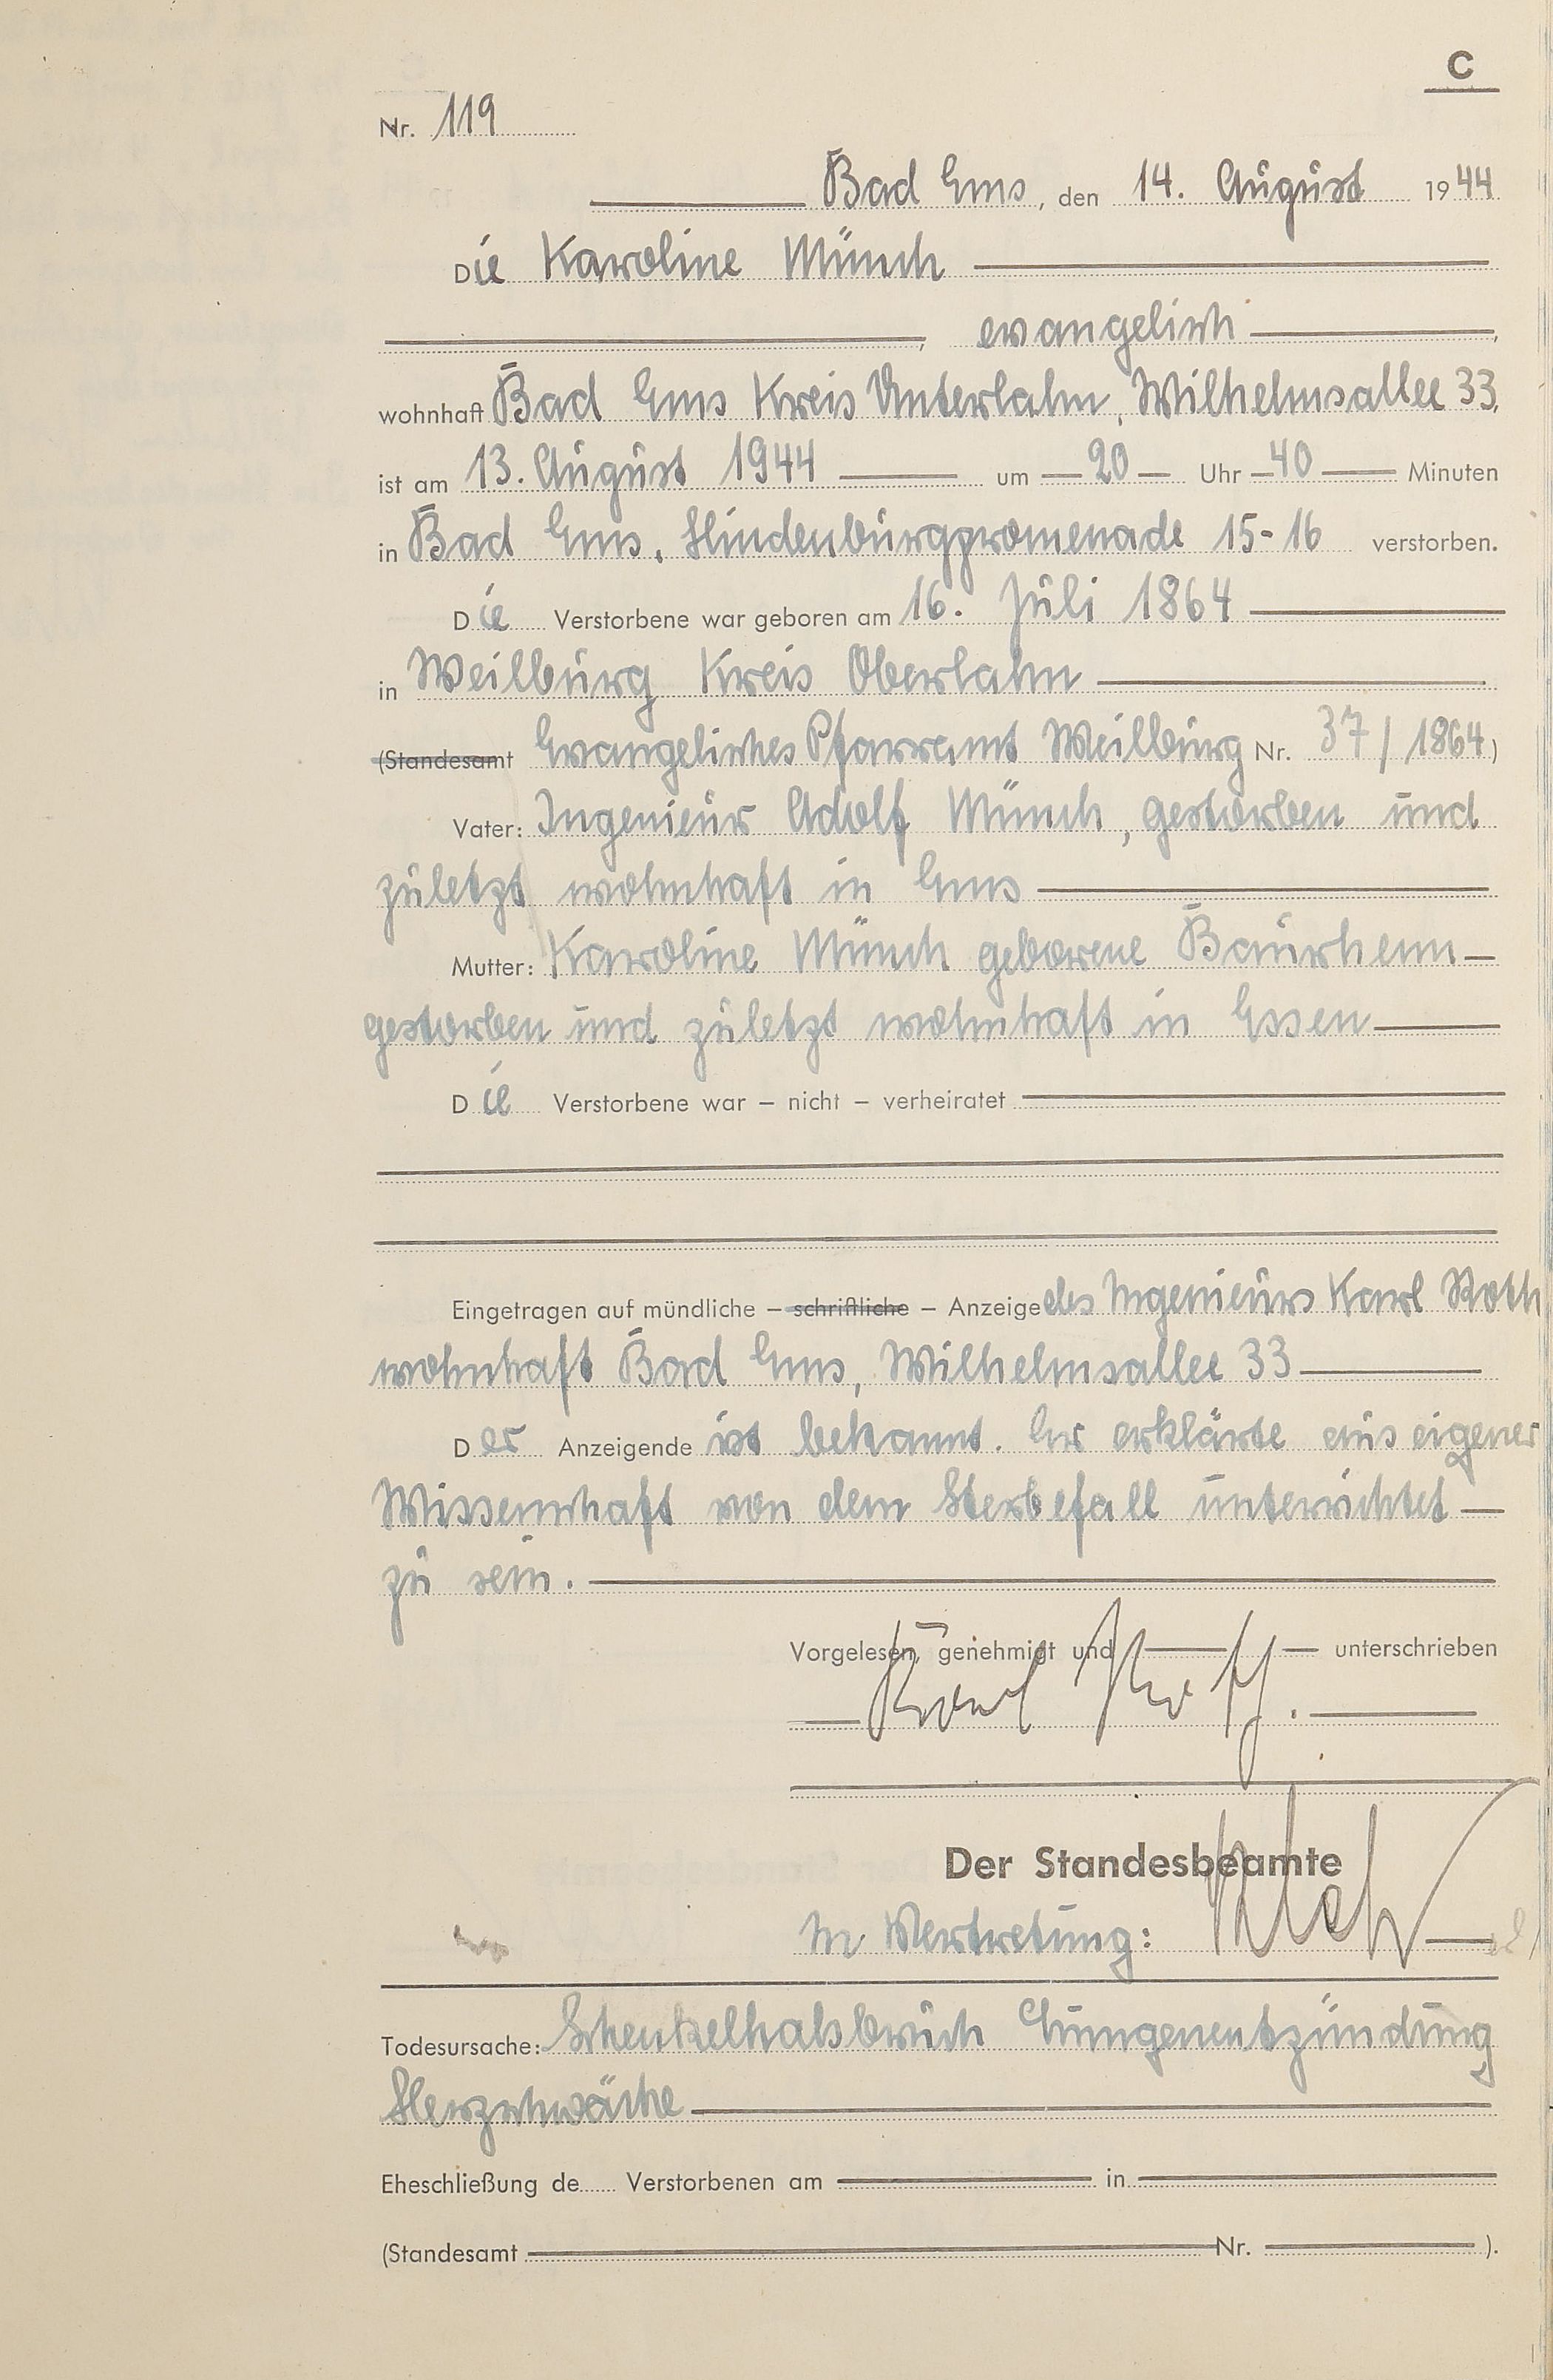 C
Nr. 119
Bad Ems, den 14. August 1944
Die Karoline Münch
, evangelisch ,
wohnhaft Bad Ems Kreis Unterlahn, Wilhelmsallee 33,
ist am 13. August 1944 um 20 Uhr 40 Minuten
in Bad Ems, Hindenburgpromenade 15-16 verstorben.
Die Verstorbene war geboren am 16. Juli 1864
in Weilburg Kreis Oberlahn
(Standesamt Evangelisches Pfarramt Weilburg Nr. 37/1864)
Vater: Ingenieur Adolf Münch, gestorben und
zuletzt wohnhaft in Ems
Mutter: Karoline Münch geborene Baurhenn
gestorben und zuletzt wohnhaft in Essen
Die Verstorbene war – nicht – verheiratet
Eingetragen auf mündliche – schriftliche – Anzeige des Ingenieurs Karl Roth
wohnhaft Bad Ems, Wilhelmsallee 33
Der Anzeigende ist bekannt. Er erklärte aus eigener
Wissenschaft von dem Sterbefall unterrichtet
zu sein.
Vorgelesen, genehmigt und unterschrieben
Karl Roth.
Der Standesbeamte
In Vertretung:
Todesursache: Schenkelhalsbruch Lungenentzündung
Herzschwäche
Eheschließung de Verstorbenen am in
(Standesamt Nr. ).